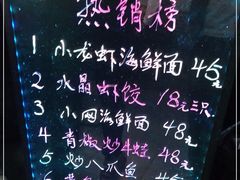 热销榜
1 小龙虾海鲜面 45元
2 水晶虾饺 18元三只
3 小网海鲜面 48元
4 青椒炒牛蛙 48元
5 炒八爪鱼
6